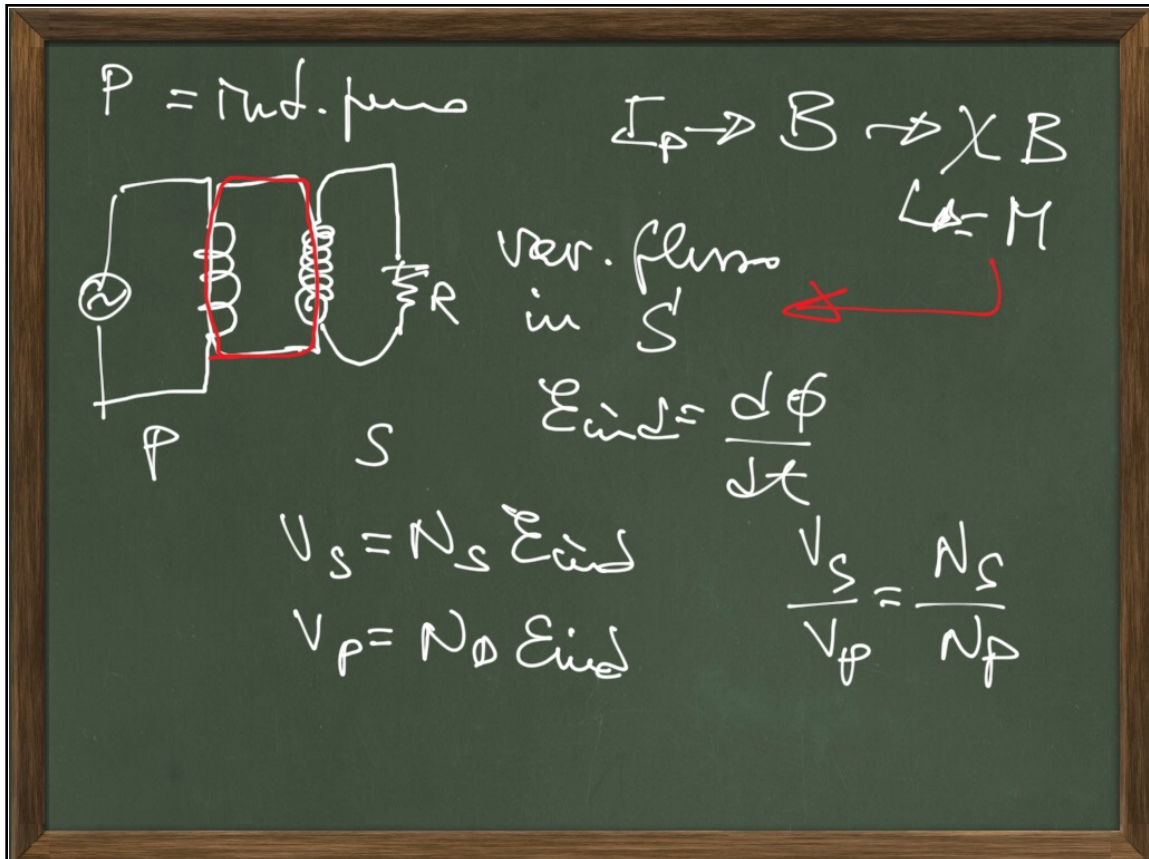 P = ind. puro
I_P → B → χ B
↳ = M
var. flusso
in S
R
P
S
Ɛind = dΦ/dt
V_S = N_S Ɛind
V_P = N_P Ɛind
V_S/V_P = N_S/N_P